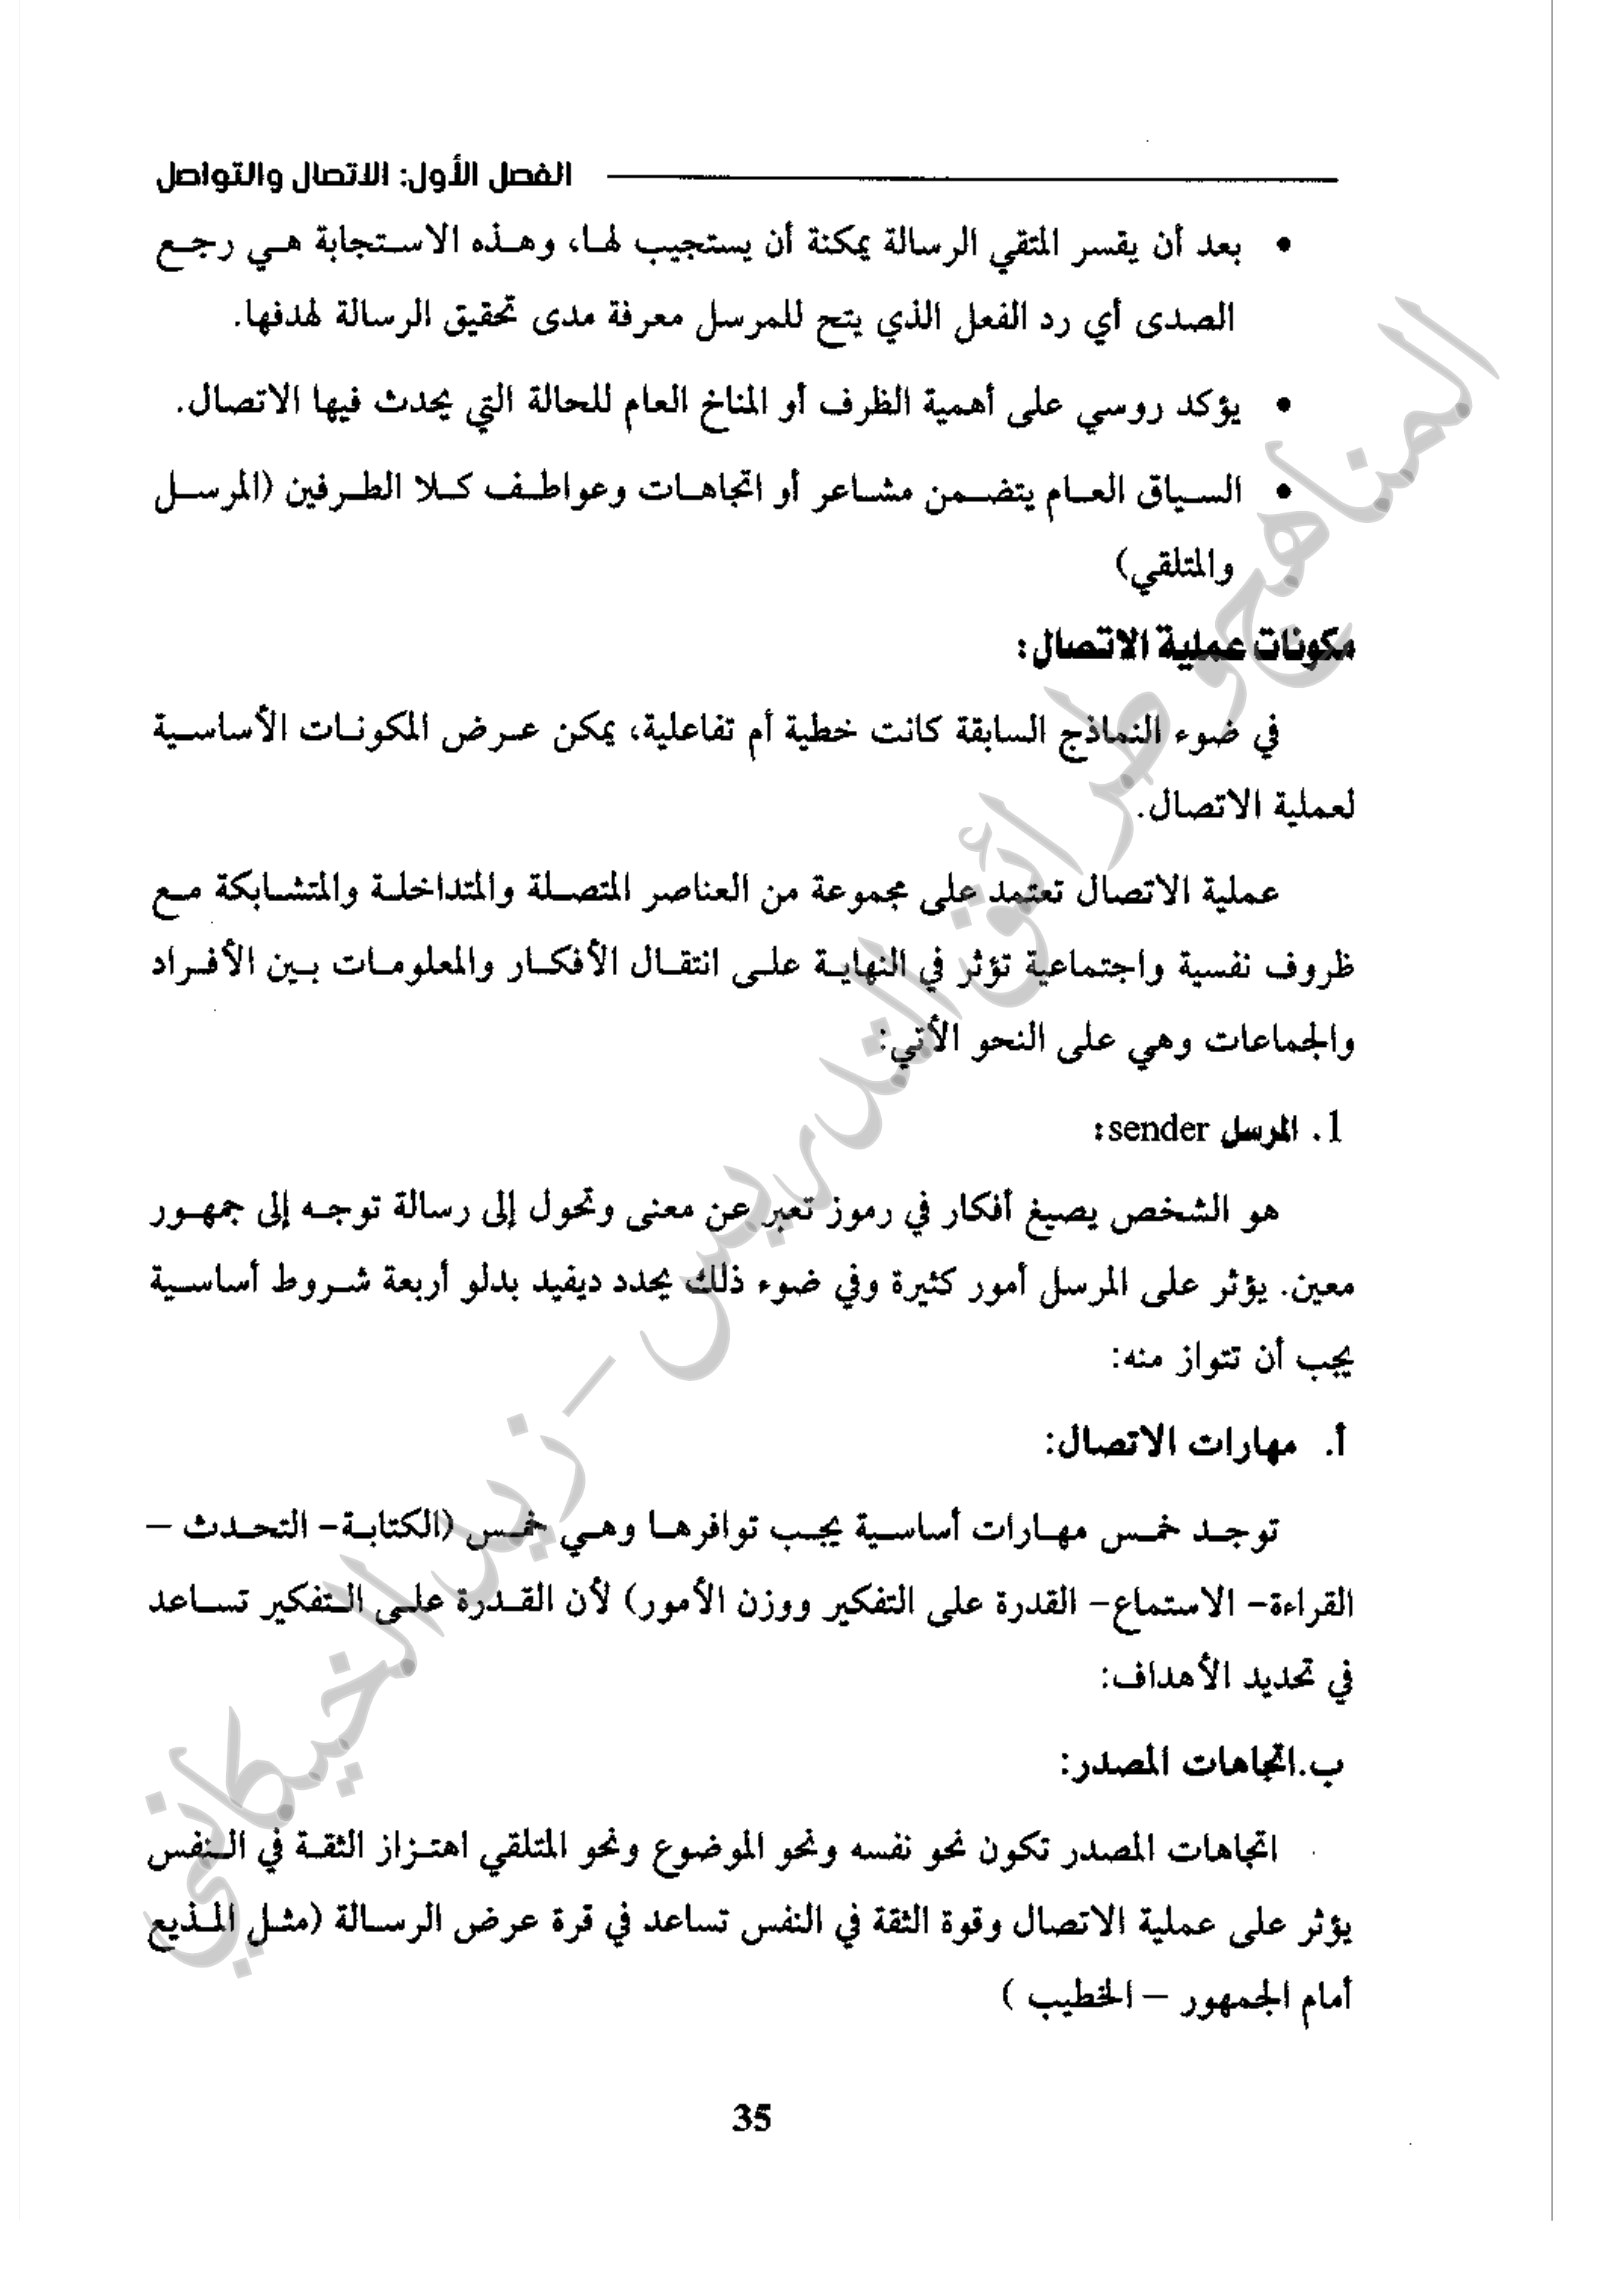 الفصل الأول: الاتصال والتواصل
• بعد أن يقسر المتقي الرسالة يمكنة أن يستجيب لها، وهذه الاستجابة هي رجع
الصدى أي رد الفعل الذي يتح للمرسل معرفة مدى تحقيق الرسالة لهدفها.
• يؤكد روسي على أهمية الظرف أو المناخ العام للحالة التي يحدث فيها الاتصال.
• السياق العام يتضمن مشاعر أو اتجاهات وعواطف كلا الطرفين (المرسل
والمتلقي)
مكونات عملية الاتصال:
في ضوء النماذج السابقة كانت خطية أم تفاعلية، يمكن عرض المكونات الأساسية
لعملية الاتصال.
عملية الاتصال تعتمد على مجموعة من العناصر المتصلة والمتداخلة والمتشابكة مع
ظروف نفسية واجتماعية تؤثر في النهاية على انتقال الأفكار والمعلومات بين الأفراد
والجماعات وهي على النحو الأتي:
1. المرسل sender:
هو الشخص يصيغ أفكار في رموز تعبر عن معنى وتحول إلى رسالة توجه إلى جمهور
معين. يؤثر على المرسل أمور كثيرة وفي ضوء ذلك يحدد ديفيد بدلو أربعة شروط أساسية
يجب أن تتواز منه:
أ. مهارات الاتصال:
توجد خمس مهارات أساسية يجب توافرها وهي خمس (الكتابة- التحدث –
القراءة- الاستماع- القدرة على التفكير ووزن الأمور) لأن القدرة على التفكير تساعد
في تحديد الأهداف:
ب.اتجاهات المصدر:
اتجاهات المصدر تكون نحو نفسه ونحو الموضوع ونحو المتلقي اهتزاز الثقة في النفس
يؤثر على عملية الاتصال وقوة الثقة في النفس تساعد في قرة عرض الرسالة (مثل المذيع
أمام الجمهور – الخطيب )
35
المناهج وطرائق التدريس – زيد الخيكاني